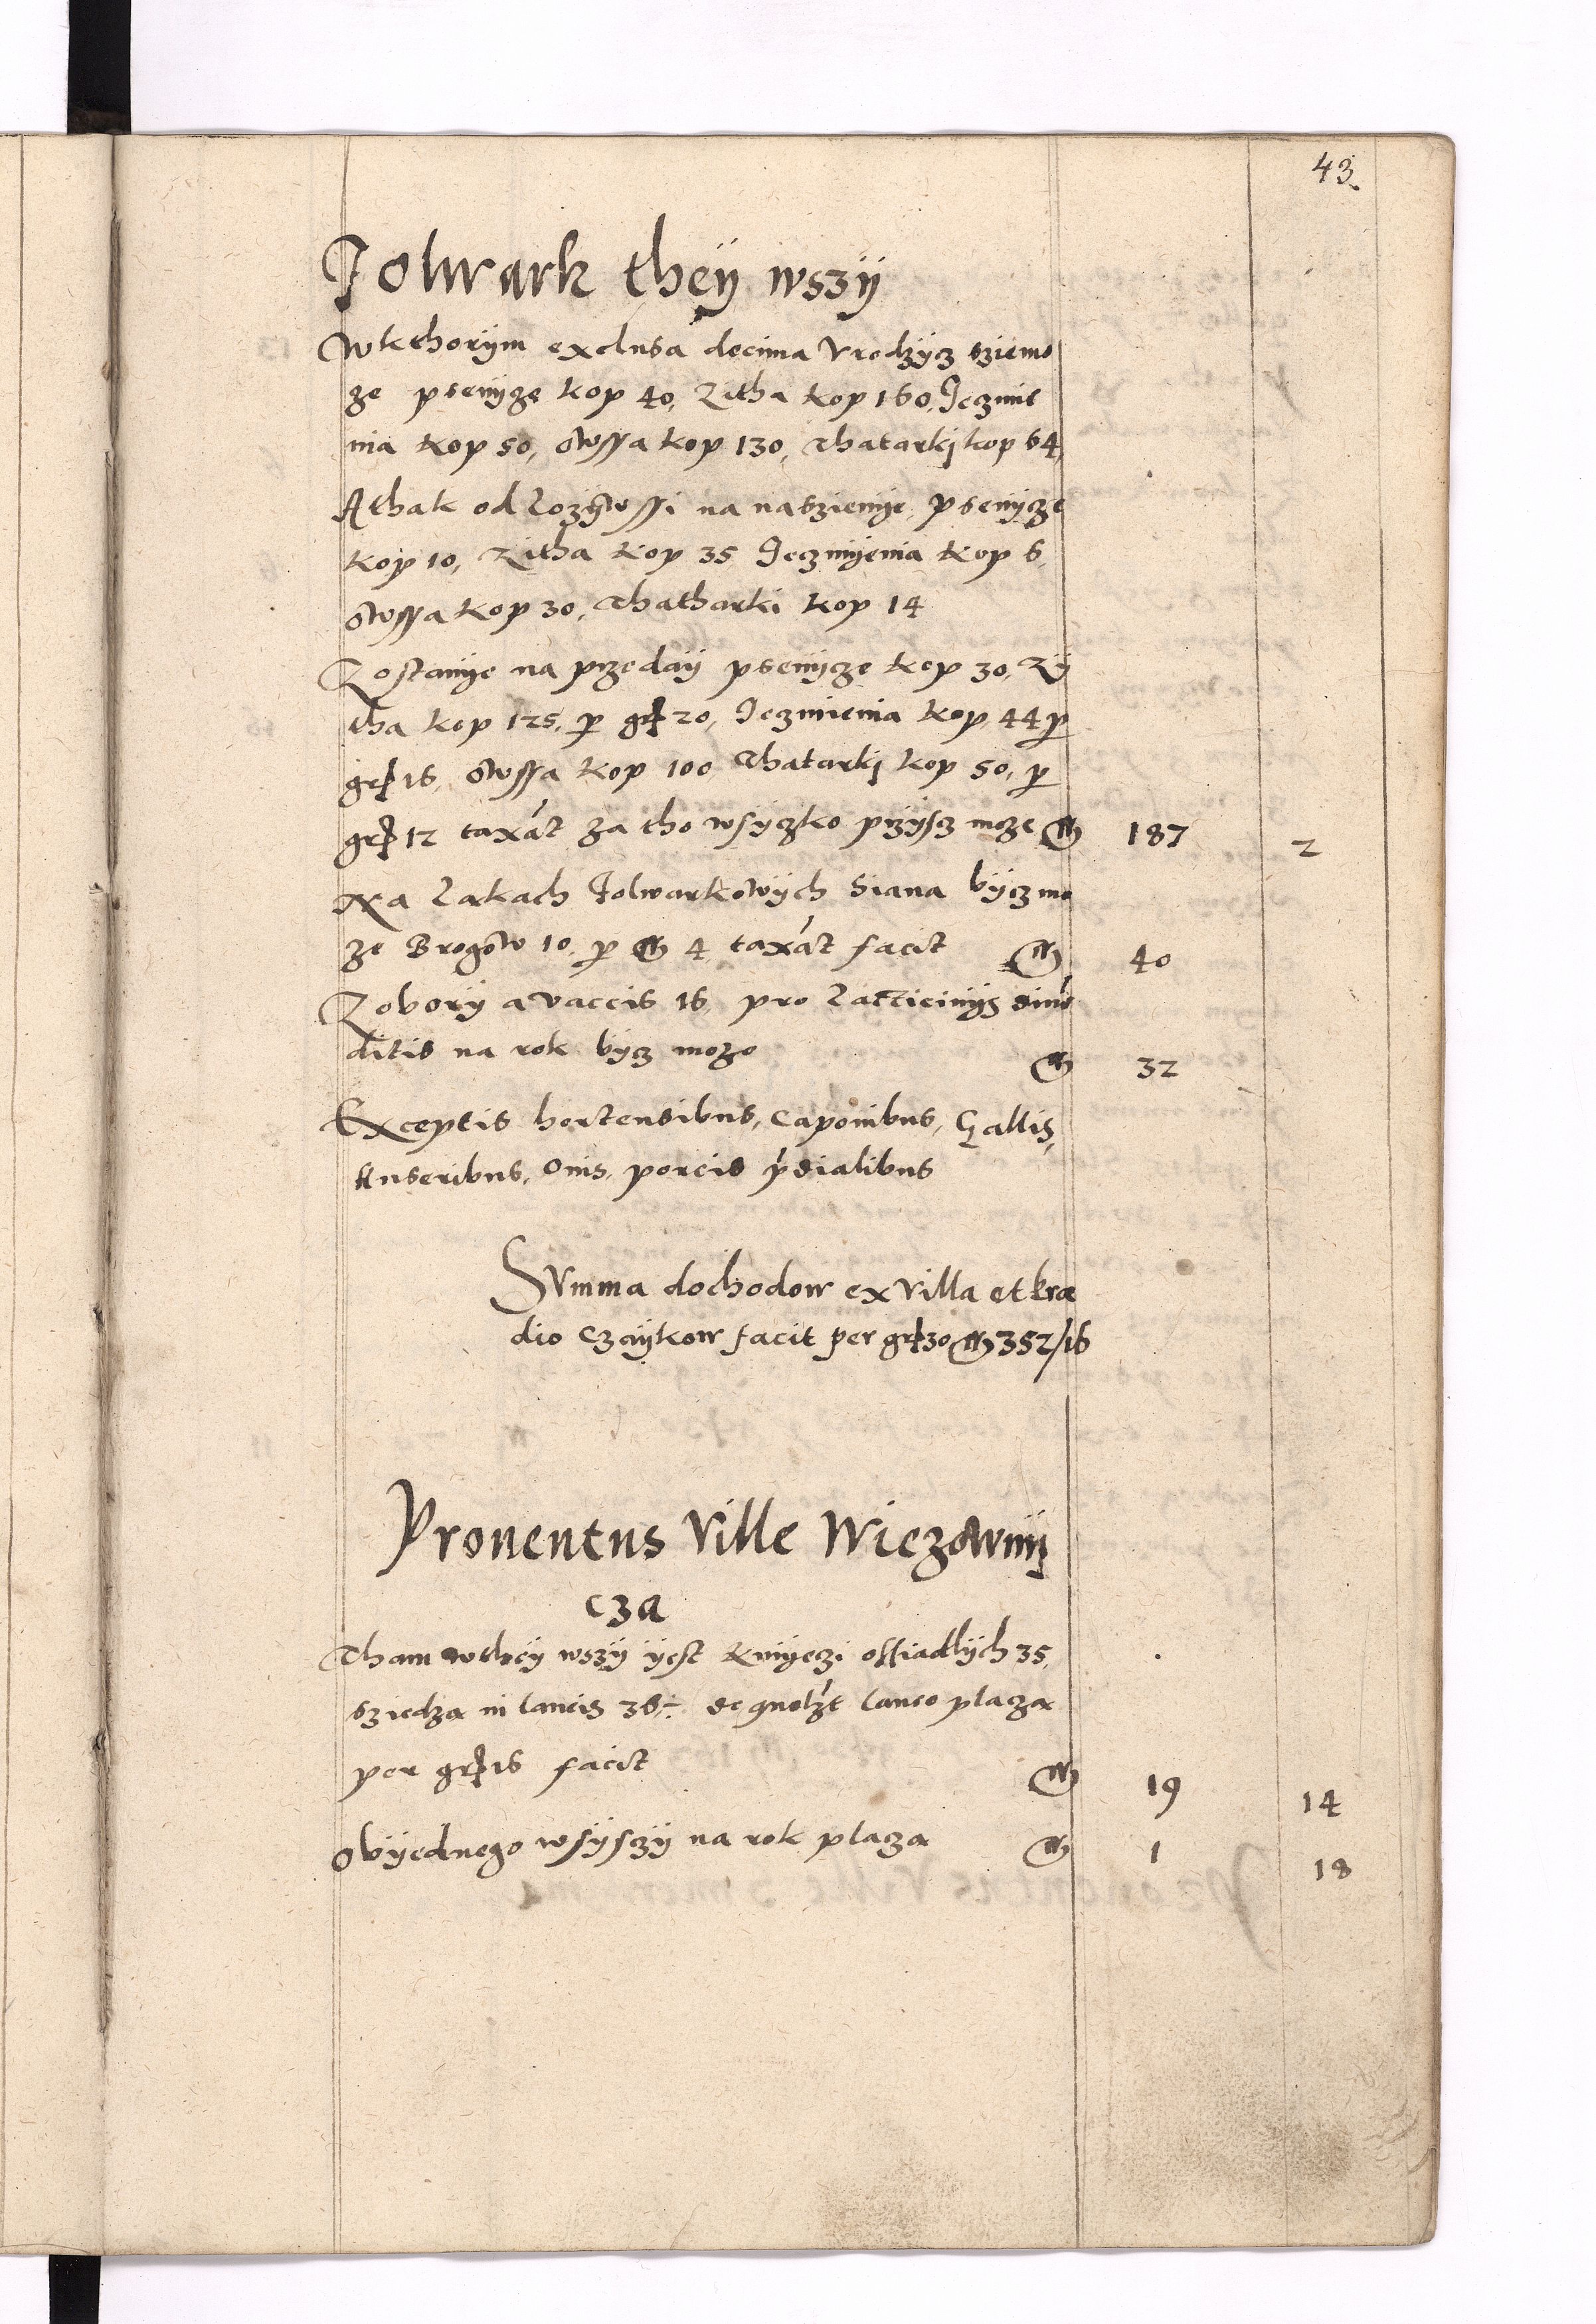 43.
Folwark they wszÿ
Wkthorÿm exclusa decima Vrodzÿcz sziemo
ze psenÿcze kop 40, Zitha kop 160, Jeczmie
nia kop 50, Owssa kop 130, Thatarkj kop 64,
Athak odlozÿwssi na nasziemÿe, psenÿcze
kop 10, Zitha kop 35 Jeczmÿenia kop 6,
Owssa kop 30, Thatharki kop 14
Zostanÿe na przedaÿ psenÿcze kop 30, Zÿ
tha kop 125, p gr 20, Jeczmienia kop 44 p
gr 16, Owssa kop 100 Thatarkj kop 50, p
gr 12 taxāt za tho wsÿczko przÿsz moze M 187 2
Na Lakach folwarkowÿch Siana bÿcz mo
ze Brogow 10, p M 4 taxāt facit M 40
Zoborÿ a vaccis 16, pro Lacticinÿs
ditis na rok bÿcz moze M 32
Exceptis hortensibus, Caponibus, Gallis,
Anseribus, Ouis, porcis pdialibus
Summa dochodow ex villa et
dio Czaÿkow facit per gr 30 M 352/16
Prouentus Ville Wiezownÿ
cza
Tham wtheÿ wszÿ ÿest kmÿeczi ossiadlÿch 35,
sziedza in laneis 36÷ de quolzt laneo placza
per gr 16 facit M 19 14
Obÿednego wsÿsczÿ na rok placza M 1 18